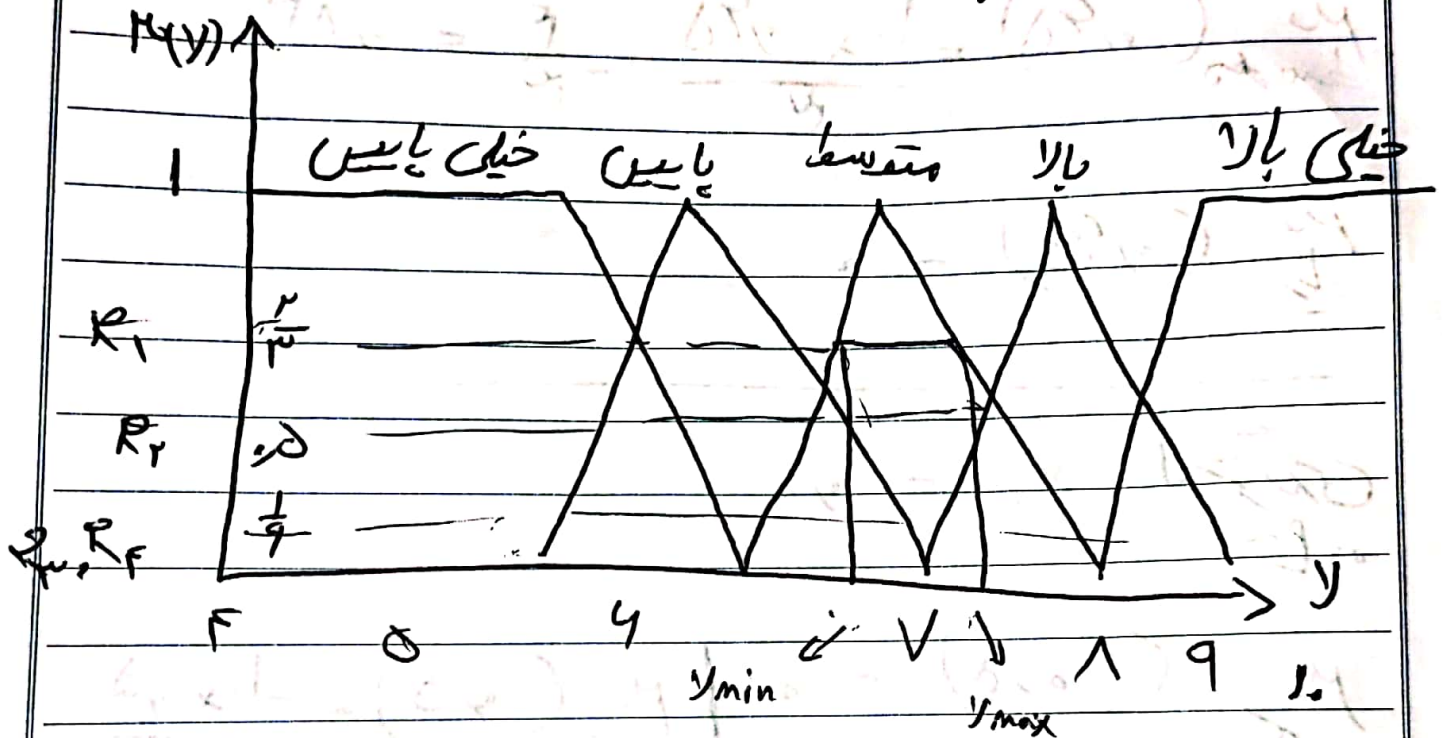 μ(y)
خیلی پایین پایین متوسط بالا خیلی بالا
1
R₁ ۲/۳
R₂ ۰.۵
R₃, R₄ ۱/۶
y
۴ ۵ ۶ ۷ ۸ ۹ ۱۰
ymin ymax